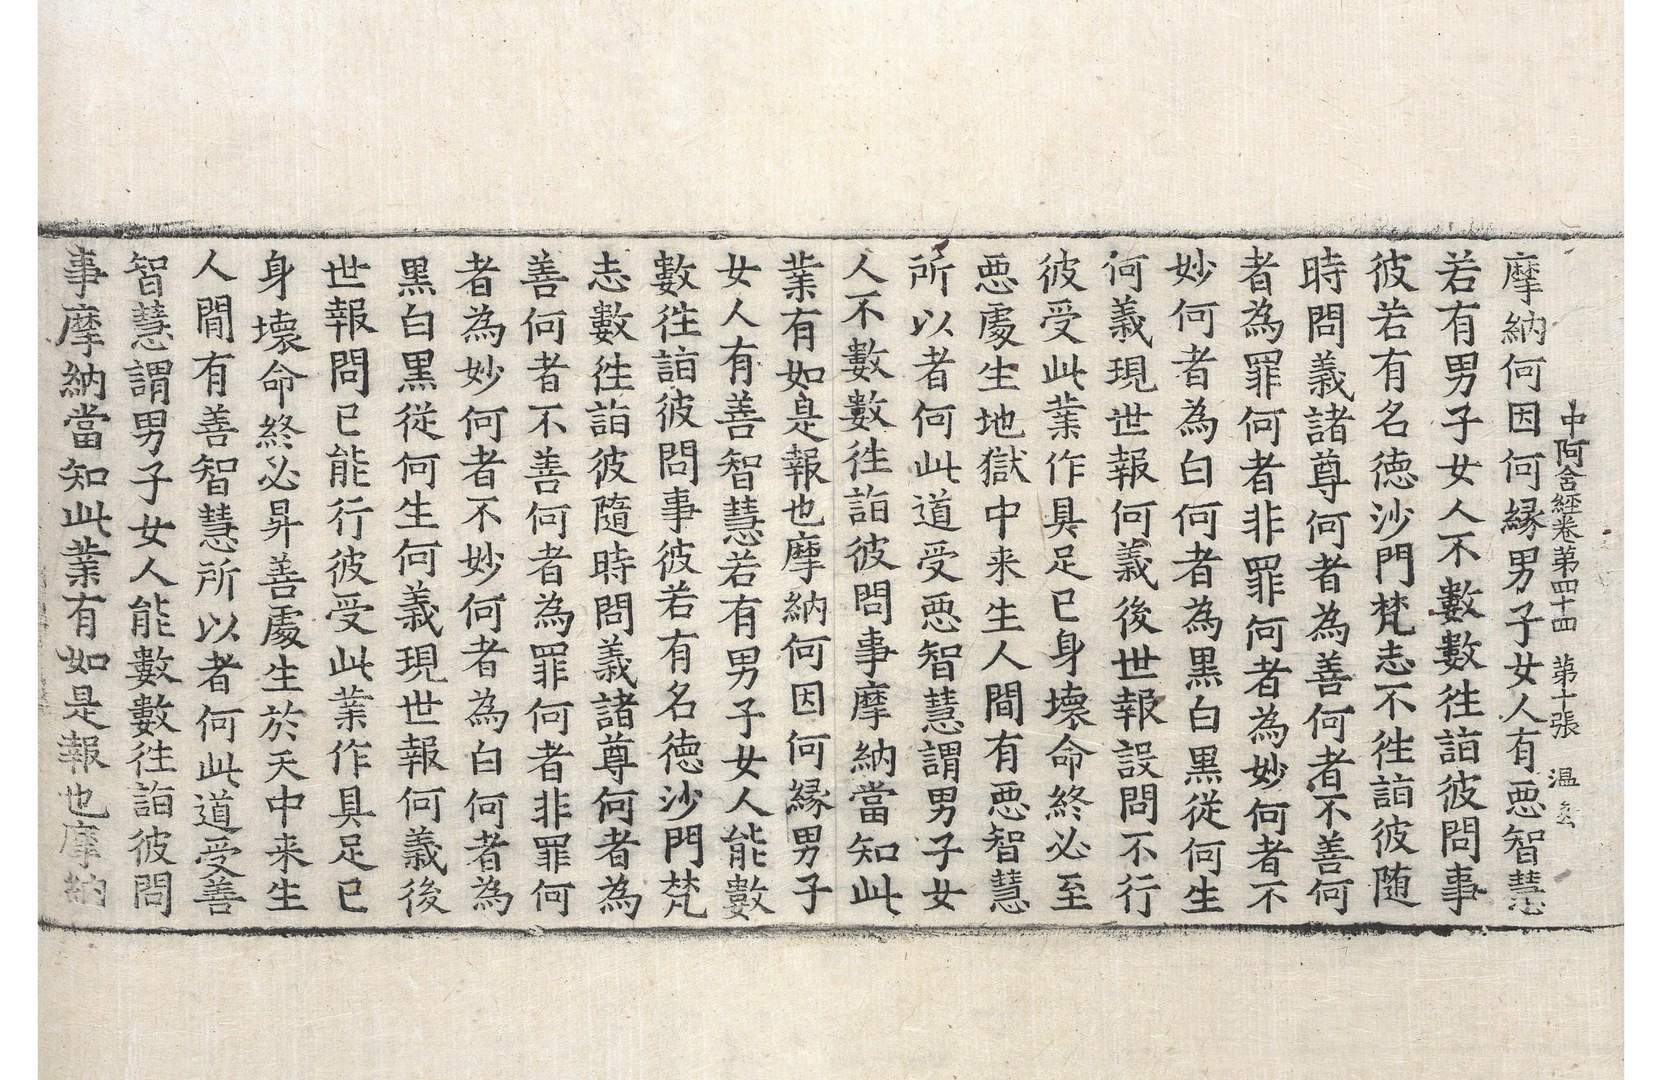 中阿含經卷第四十四 第十張 温
摩納何因何縁男子女人有悪智慧
若有男子女人不數數徃詣彼問事
彼若有名德沙門梵志不徃詣彼随
時問義諸尊何者為善何者不善何
者為罪何者非罪何者為妙何者不
妙何者為白何者為黒白黒從何生
何義現世報何義後世報設問不行
彼受此業作具足已身壊命終必至
悪處生地獄中来生人間有悪智慧
所以者何此道受悪智慧謂男子女
人不數數徃詣彼問事摩納當知此
業有如是報也摩納何因何縁男子
女人有善智慧若有男子女人能數
數徃詣彼問事彼若有名德沙門梵
志數徃詣彼隨時問義諸尊何者為
善何者不善何者為罪何者非罪何
者為妙何者不妙何者為白何者為
黒白黒從何生何義現世報何義後
世報問已能行彼受此業作具足已
身壊命終必昇善處生於天中来生
人間有善智慧所以者何此道受善
智慧謂男子女人能數數徃詣彼問
事摩納當知此業有如是報也摩納